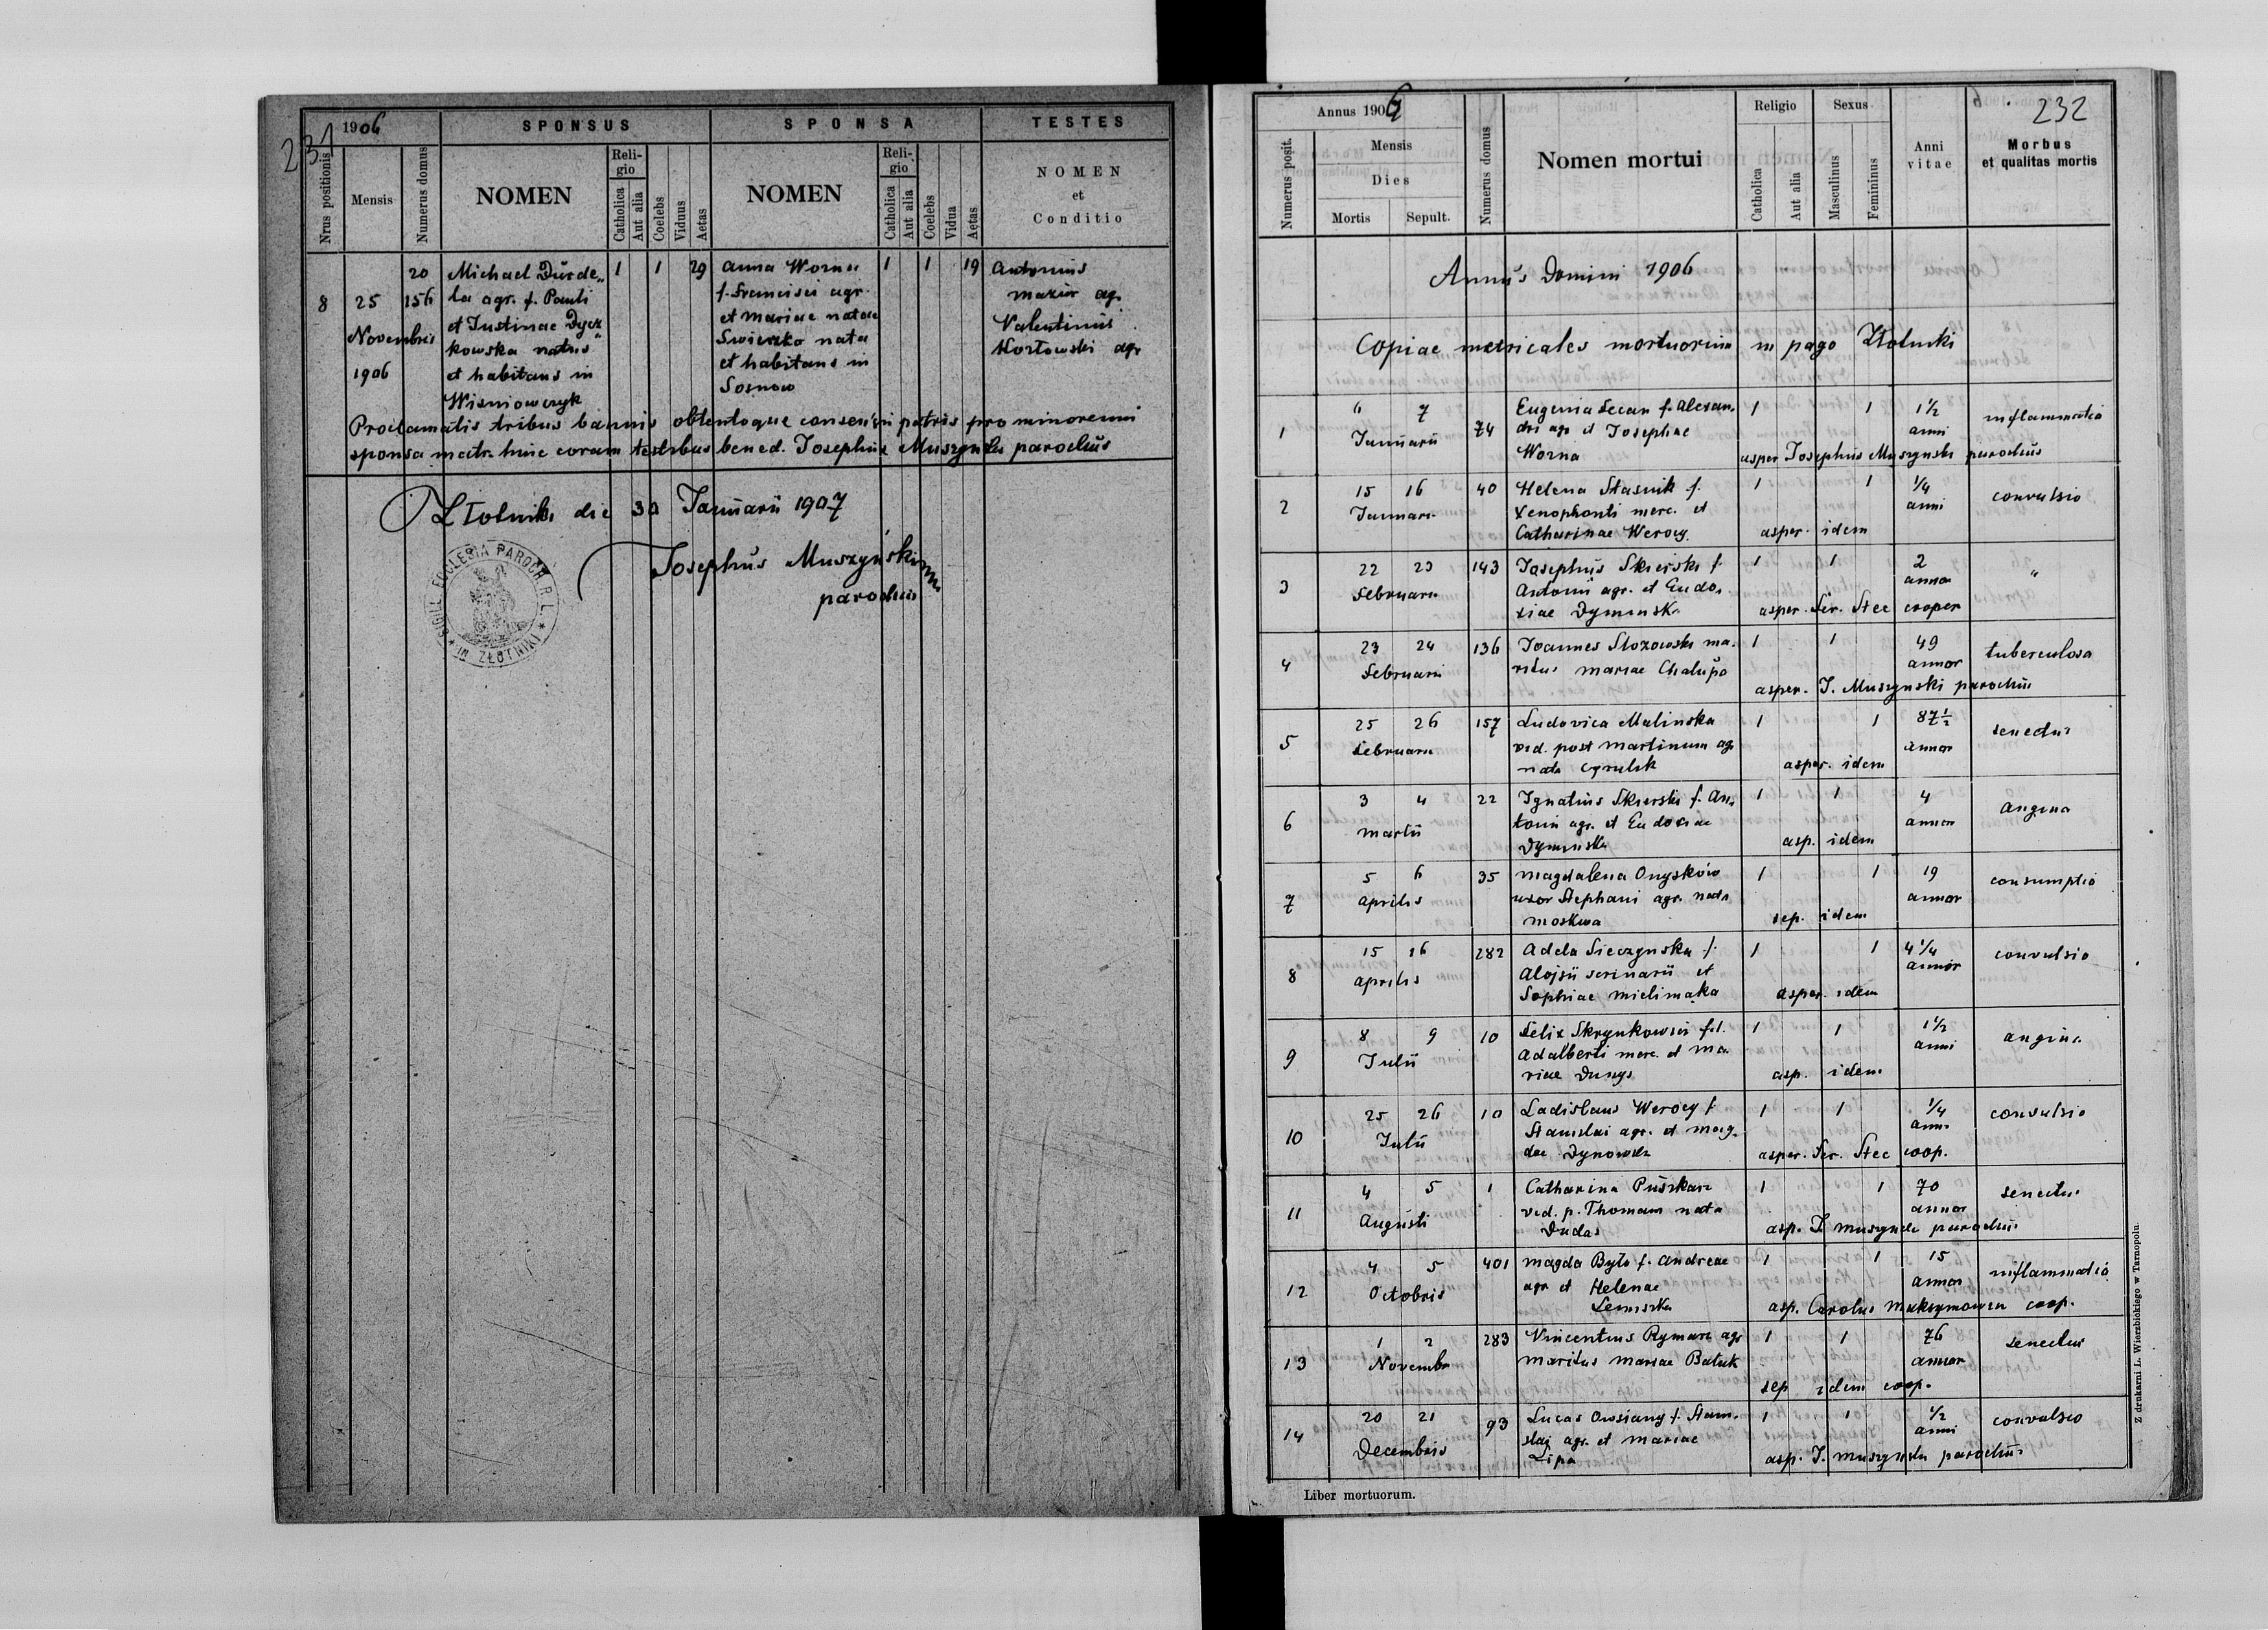 231
1906
SPONSUS
SPONSA
TESTES
Nrus positionis
Mensis
Numerus domus
NOMEN
Religio
Catholica
Aut alia
Coelebs
Viduus
Aetas
NOMEN
Religio
Catholica
Aut alia
Coelebs
Vidua
Aetas
NOMEN
et
Conditio
8
25
Novembris
1906
20
156
Michael Durde„
la agr. f. Pauli
et Justinae Dycz
kowska natus
et habitans in
Wisniowczyk
1 1 29
Anna Worna
f. Francisci agr.
et Mariae natae
Swierzko nata
et habitans in
Sosnow
1 1 19
Antonius
Mazur ag.
Valentinus
Kozłowski agr
Proclamatis tribus bannis obtentoque consensu patris pro minorenni
sponsa matr. huic coram testibus bened. Josephus Muszyński parochus
Złotniki die 30 Januarii 1907
Josephus Muszyński
parochus
SIGIL. ECCLESIA PAROCH. R. L.
* IN ZŁOTNIKI *
232
Annus 1906
Numerus posit.
Mensis
Dies
Mortis Sepult.
Numerus domus
Nomen mortui
Religio
Catholica
Aut alia
Sexus
Masculinus
Femininus
Anni
vitae
Morbus
et qualitas mortis
Annus Domini 1906
Copiae metricales mortuorum in pago Złotniki
1 6 7 74 Eugenia Secan f. Alexan. 1 1 1 1/2 inflammatio
Januarii dri agr et Josephae anni
Worna asper Josephus Muszynski parochus
2 15 16 40 Helena Stasnik f. 1 1 1/4 convulsio
Januarii Xenophonti merc. et anni
Catharinae Werocy. asper. idem
3 22 23 143 Josephus Skierski f. 1 1 2 "
Februarii Antonii agr. et Eudo, annor
xiae Dyminsk. asper. Fer. Stec cooper
4 23 24 136 Joannes Slozowski ma. 1 1 49 tuberculosa
Februarii ritus Mariae Chalupa annor
asper. J. Muszynski parochus
5 25 26 157 Ludovica Malinska 1 1 87 1/2 senectus
Februarii vid. post Martinum ag annor
nata asper. idem
6 3 4 22 Ignatius Skierski f. An, 1 1 4 angina
Martii tonii agr. et Eudoxiae annor
Dyminska asp. idem
7 5 6 35 Magdalena Onyskow 1 1 19 consumptio
Aprilis uxor Stephani agr. nata annor
Moskwa sep. idem
8 15 16 282 Adela Sieczynska f. 1 1 4 1/4 convulsio
Aprilis Alojsii scrinarii et annor
Sophiae Mielimaka asper. idem
9 8 9 10 Felix Skrynkowski fil. 1 1 1 1/2 angina
Julii Adalberti merc. et Ma anni
riae Dunys asp. idem
10 25 26 10 Ladislaus Werocy f. 1 1 1/4 convulsio
Julii Stanislai agr. et Mag, anni
dae Dynowska asper. Fer. Stec coop.
11 4 5 1 Catharina Puszkar 1 1 70 senectus
Augusti vid. p. Thomam nata annor
Dudas asp. J. Muszynski parochus
12 4 5 401 Magda Było f. Andreae 1 1 15 inflammatio
Octobris agr et Helenae annor
Lemiszka asp. Carolus Maksymowicz coop.
13 1 2 283 Vincentius Rymarz agr 1 1 76 senectus
Novembr maritus Mariae Batuk annor
sep idem coop.
14 20 21 93 Lucas Owsiany f. Stani. 1 1 1/2 convulsio
Decembris slai agr. et Mariae anni
Lipa asp. J. Muszynski parochus
Liber mortuorum.
Z drukarni L. Wierzbickiego w Tarnopolu.